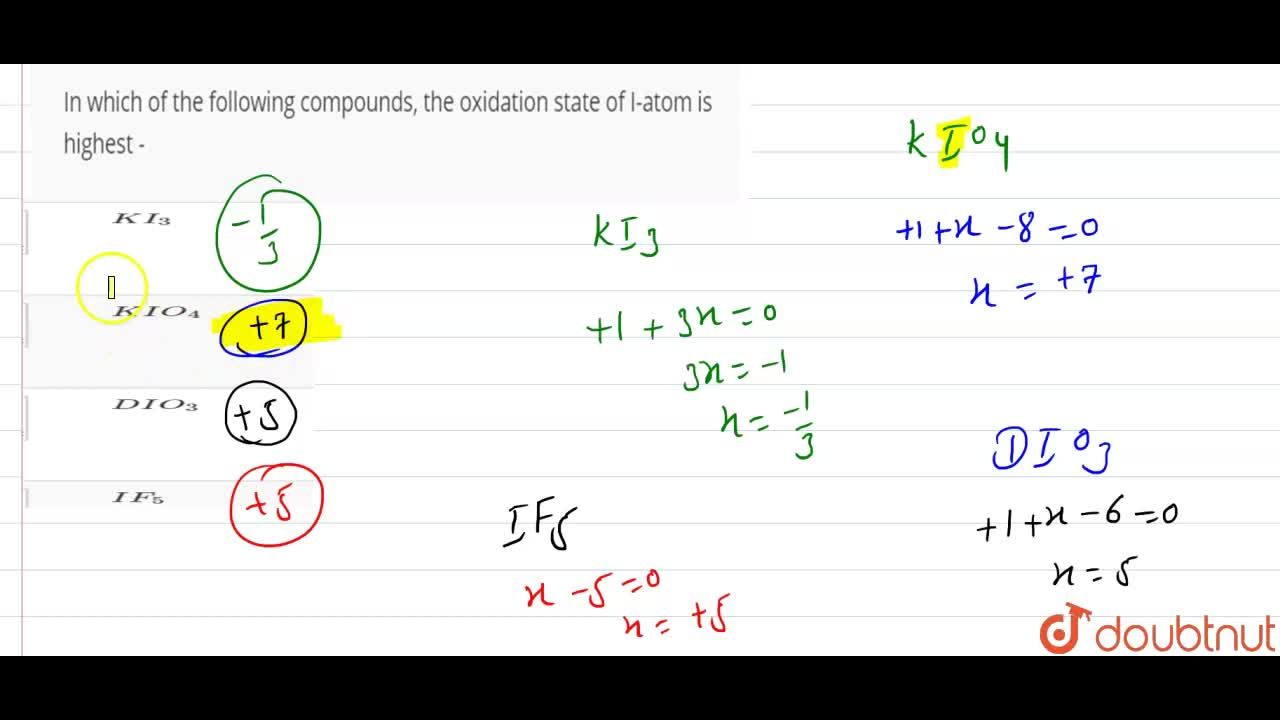 In which of the following compounds, the oxidation state of I-atom is
highest -
KI₃ -1/3
KIO₄ +7
DIO₃ +5
IF₅ +5
KI₃
+1 + 3x = 0
3x = -1
x = -1/3
IF₅
x - 5 = 0
x = +5
KIO₄
+1 + x - 8 = 0
x = +7
DIO₃
+1 + x - 6 = 0
x = 5
doubtnut